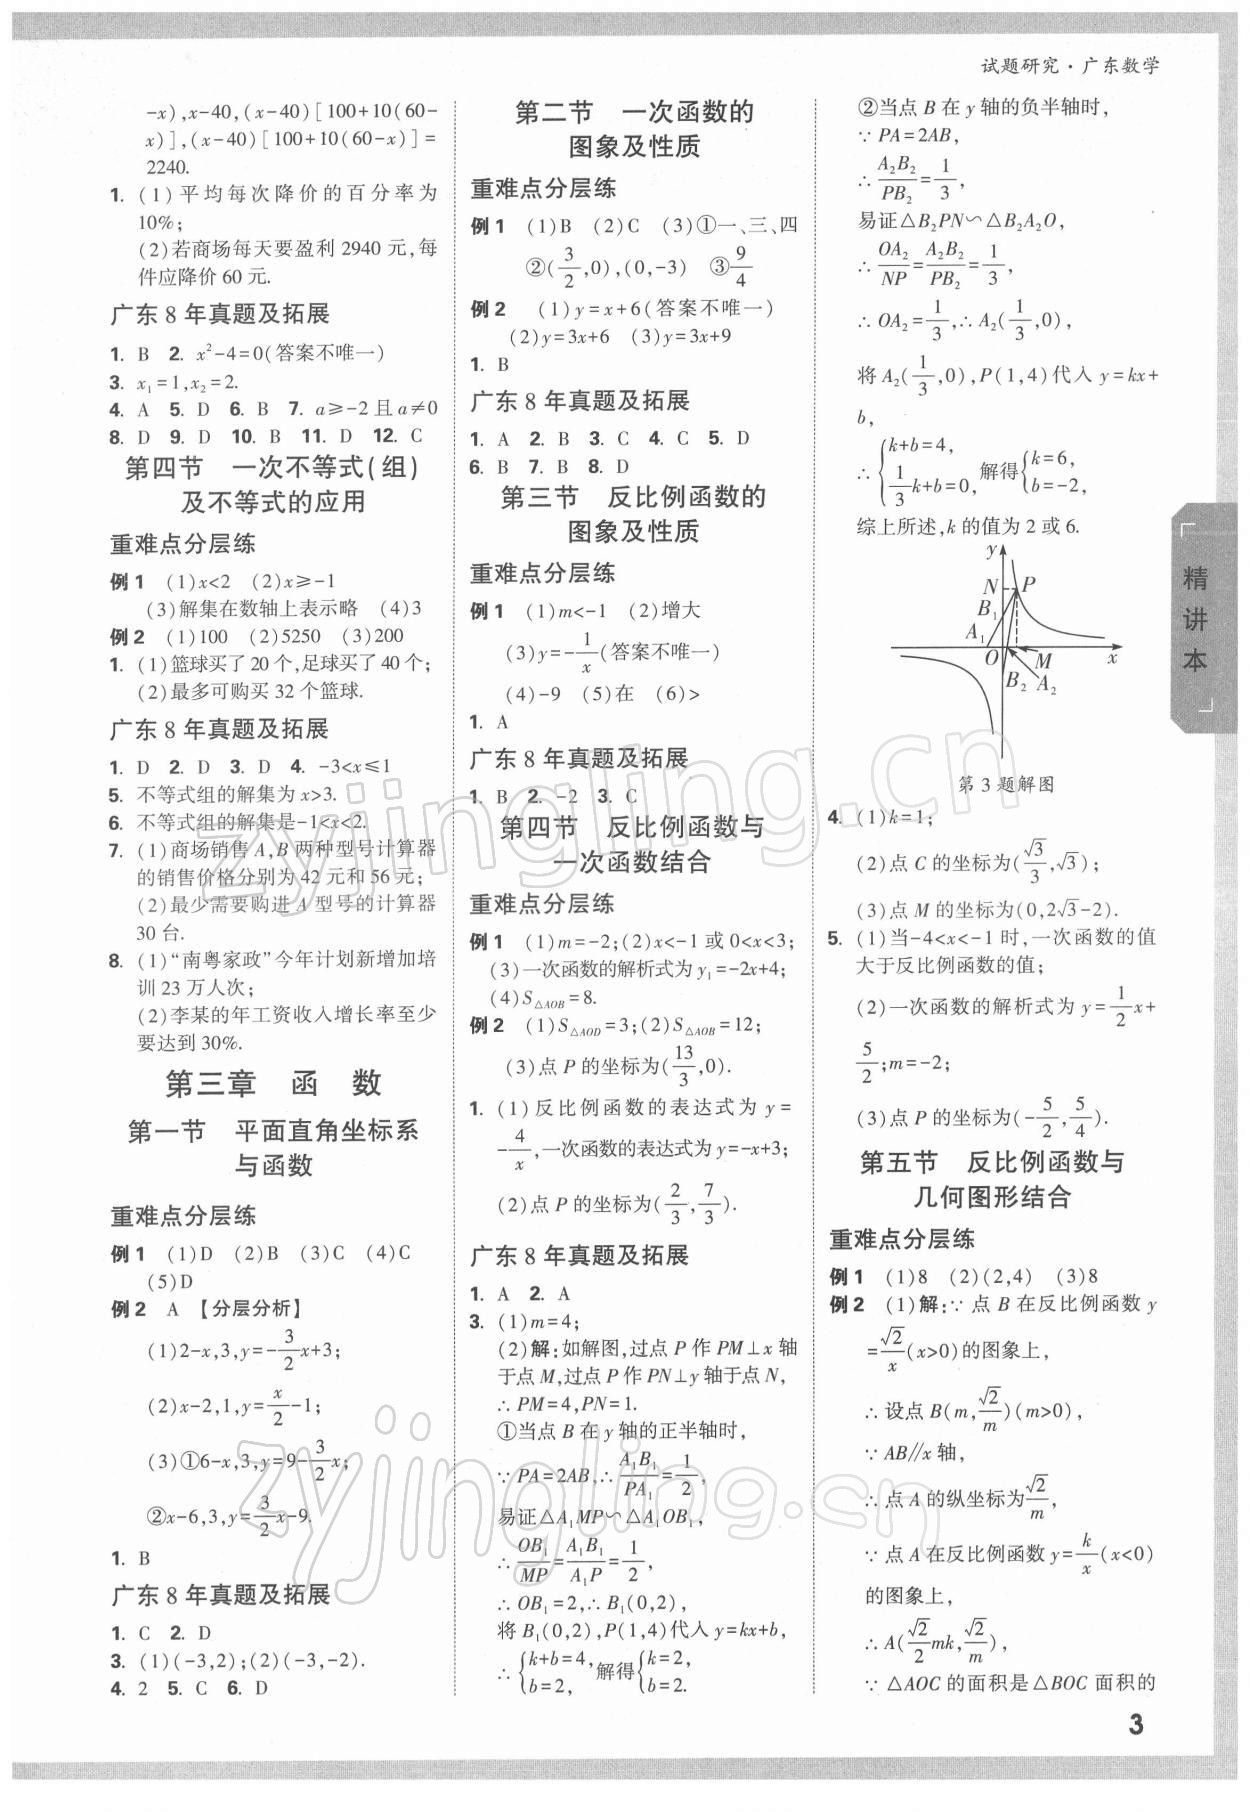 试题研究·广东数学
-x),x-40,(x-40)[100+10(60-
x)],(x-40)[100+10(60-x)]=
2240.
1. (1)平均每次降价的百分率为
10%;
(2)若商场每天要盈利 2940 元,每
件应降价 60 元.
广东 8 年真题及拓展
1. B 2. x²-4=0(答案不唯一)
3. x₁=1,x₂=2.
4. A 5. D 6. B 7. a≥-2 且 a≠0
8. D 9. D 10. B 11. D 12. C
第四节 一次不等式(组)
及不等式的应用
重难点分层练
例 1 (1)x<2 (2)x≥-1
(3)解集在数轴上表示略 (4)3
例 2 (1)100 (2)5250 (3)200
1. (1)篮球买了 20 个,足球买了 40 个;
(2)最多可购买 32 个篮球.
广东 8 年真题及拓展
1. D 2. D 3. D 4. -3<x≤1
5. 不等式组的解集为 x>3.
6. 不等式组的解集是-1<x<2.
7. (1)商场销售 A,B 两种型号计算器
的销售价格分别为 42 元和 56 元;
(2)最少需要购进 A 型号的计算器
30 台.
8. (1)“南粤家政”今年计划新增加培
训 23 万人次;
(2)李某的年工资收入增长率至少
要达到 30%.
第三章 函 数
第一节 平面直角坐标系
与函数
重难点分层练
例 1 (1)D (2)B (3)C (4)C
(5)D
例 2 A 【分层分析】
(1)2-x,3,y=-3/2x+3;
(2)x-2,1,y=x/2-1;
(3)①6-x,3,y=9-3/2x;
②x-6,3,y=3/2x-9.
1. B
广东 8 年真题及拓展
1. C 2. D
3. (1)(-3,2);(2)(-3,-2).
4. 2 5. C 6. D
第二节 一次函数的
图象及性质
重难点分层练
例 1 (1)B (2)C (3)①一、三、四
②(3/2,0),(0,-3) ③9/4
例 2 (1)y=x+6(答案不唯一)
(2)y=3x+6 (3)y=3x+9
1. B
广东 8 年真题及拓展
1. A 2. B 3. C 4. C 5. D
6. B 7. B 8. D
第三节 反比例函数的
图象及性质
重难点分层练
例 1 (1)m<-1 (2)增大
(3)y=-1/x(答案不唯一)
(4)-9 (5)在 (6)>
1. A
广东 8 年真题及拓展
1. B 2. -2 3. C
第四节 反比例函数与
一次函数结合
重难点分层练
例 1 (1)m=-2;(2)x<-1 或 0<x<3;
(3)一次函数的解析式为 y₁=-2x+4;
(4)S△AOB=8.
例 2 (1)S△AOD=3;(2)S△AOB=12;
(3)点 P 的坐标为(13/3,0).
1. (1)反比例函数的表达式为 y=
-4/x,一次函数的表达式为 y=-x+3;
(2)点 P 的坐标为(2/3,7/3).
广东 8 年真题及拓展
1. A 2. A
3. (1)m=4;
(2)解:如解图,过点 P 作 PM⊥x 轴
于点 M,过点 P 作 PN⊥y 轴于点 N,
∴PM=4,PN=1.
①当点 B 在 y 轴的正半轴时,
∵PA=2AB,∴A₁B₁/PA₁=1/2,
易证△A₁MP∽△A₁OB₁,
∴OB₁/MP=A₁B₁/A₁P=1/2,
∴OB₁=2,∴B₁(0,2),
将 B₁(0,2),P(1,4)代入 y=kx+b,
∴{k+b=4, b=2, 解得{k=2, b=2.
②当点 B 在 y 轴的负半轴时,
∵PA=2AB,
∴A₂B₂/PB₂=1/3,
易证△B₂PN∽△B₂A₂O,
∴OA₂/NP=A₂B₂/PB₂=1/3,
∴OA₂=1/3,∴A₂(1/3,0),
将 A₂(1/3,0),P(1,4)代入 y=kx+
b,
∴{k+b=4, 1/3k+b=0, 解得{k=6, b=-2,
综上所述,k 的值为 2 或 6.
y
N P
B₁
A₁
O M x
B₂ A₂
第 3 题解图
4. (1)k=1;
(2)点 C 的坐标为(√3/3,√3);
(3)点 M 的坐标为(0,2√3-2).
5. (1)当-4<x<-1 时,一次函数的值
大于反比例函数的值;
(2)一次函数的解析式为 y=1/2x+
5/2;m=-2;
(3)点 P 的坐标为(-5/2,5/4).
第五节 反比例函数与
几何图形结合
重难点分层练
例 1 (1)8 (2)(2,4) (3)8
例 2 (1)解:∵点 B 在反比例函数 y
=√2/x(x>0)的图象上,
∴设点 B(m,√2/m)(m>0),
∵AB//x 轴,
∴点 A 的纵坐标为√2/m,
∵点 A 在反比例函数 y=k/x(x<0)
的图象上,
∴A(√2/2mk,√2/m),
∵△AOC 的面积是△BOC 面积的
精讲本
3
zyjingling.cn
zyjingling.cn